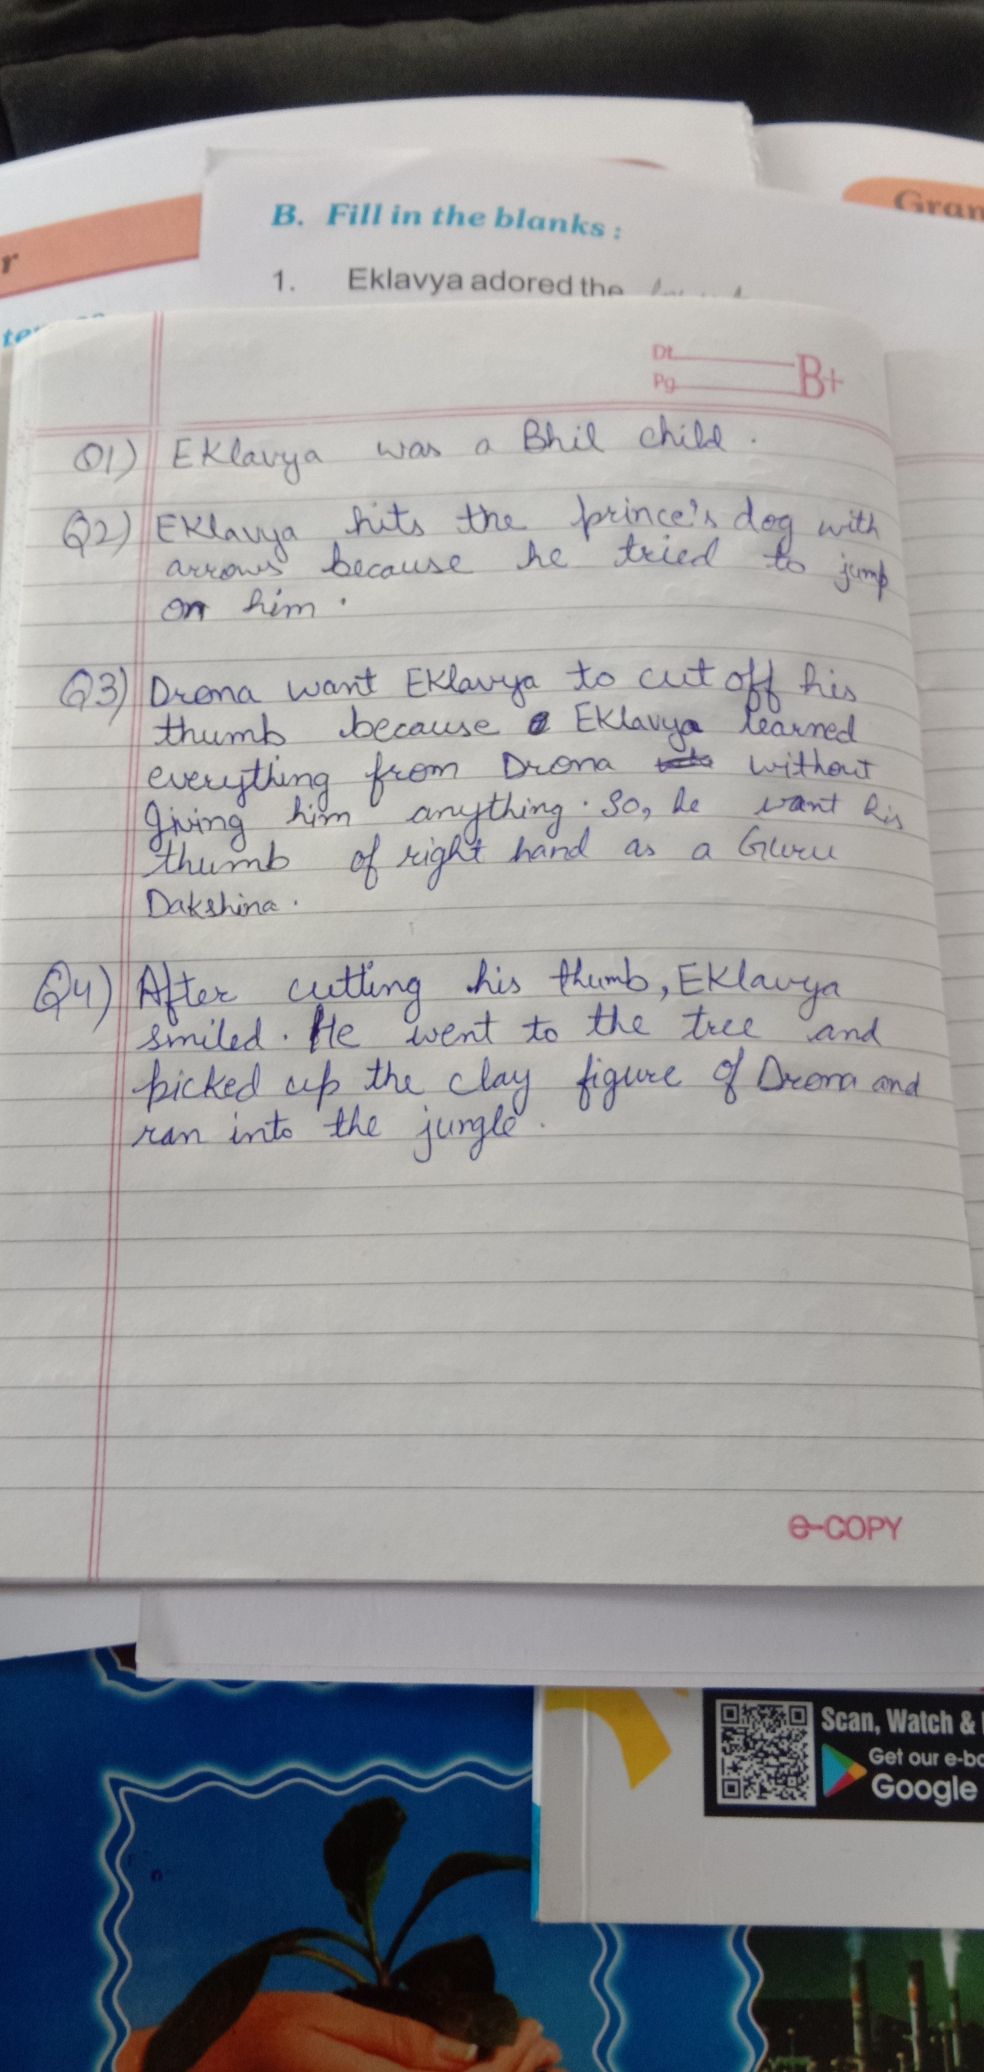 Gran
r
B. Fill in the blanks :
1. Eklavya adored the
Dt.
Pg
B+
Q1) EKlavya was a Bhil child.
Q2) EKlavya hits the prince's dog with
arrows because he tried to jump
on him.
Q3) Drona want EKlavya to cut off his
thumb because EKlavya learned
everything from Drona without
giving him anything. So, he want his
thumb of right hand as a Guru
Dakshina.
Q4) After cutting his thumb, EKlavya
smiled. He went to the tree and
picked up the clay figure of Drona and
ran into the jungle.
e-COPY
Scan, Watch &
Get our e-bo
Google